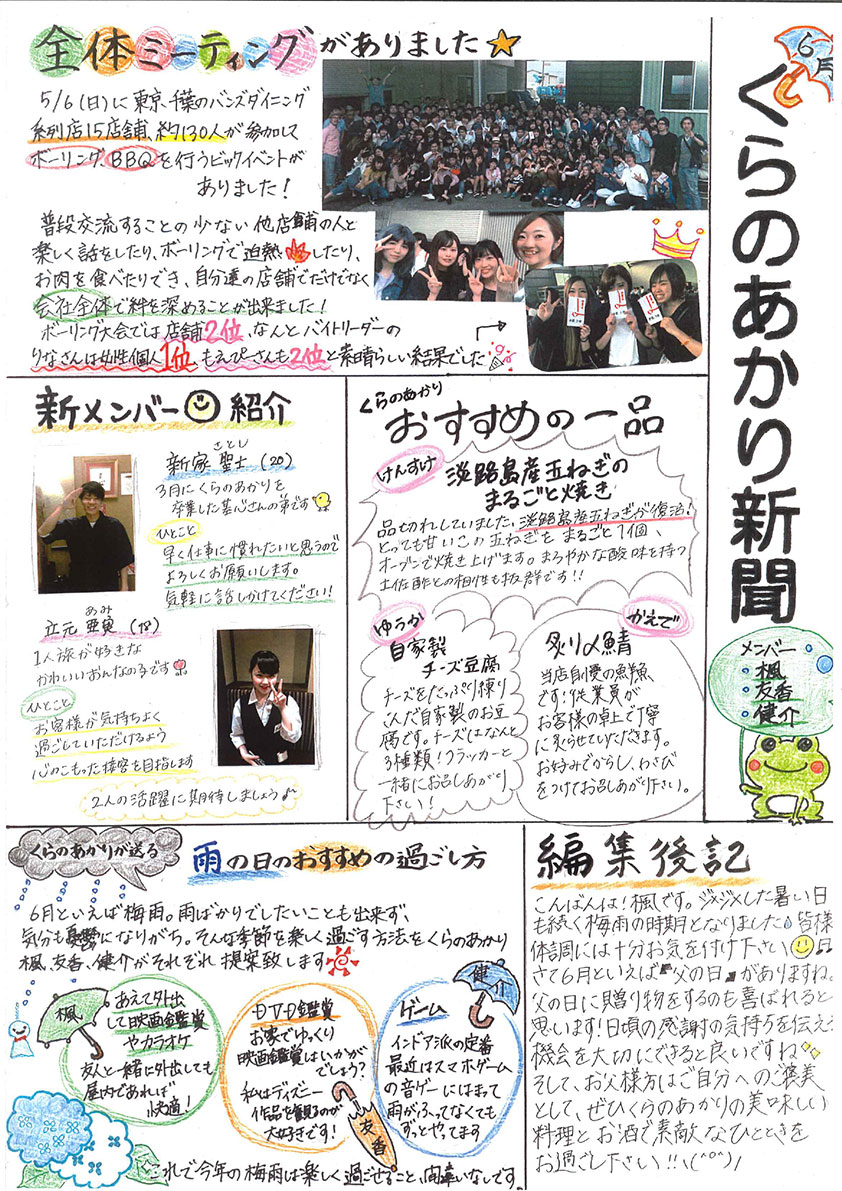 6月
くらのあかり新聞
メンバー
・楓
・友香
・健介
全体ミーティングがありました
5/6(日)に東京、千葉のバンズダイニング
系列店15店舗、約130人が参加して
ボーリング、BBQを行うビックイベントが
ありました！
普段交流することの少ない他店舗の人と
楽しく話をしたり、ボーリングで白熱したり、
お肉を食べたりでき、自分達の店舗でだけでなく
会社全体で絆を深めることが出来ました！
ボーリング大会では店舗2位、なんとバイトリーダーの
りなさんは女性個人1位、もえぴーさんも2位と素晴らしい結果でした
新メンバー紹介
さとし
新家 聖士 (20)
3月にくらのあかりを
卒業した喜心さんの弟です
ひとこと
早く仕事に慣れたいと思うので
よろしくお願いします。
気軽に話しかけてください！
あみ
立元 亜実 (18)
1人旅が好きな
かわいいおんなの子です
ひとこと
お客様が気持ちよく
過ごしていただけるよう
心のこもった接客を目指します
2人の活躍に期待しましょう♪
くらのあかり
おすすめの一品
けんすけ
淡路島産玉ねぎの
まるごと焼き
品切れしていました、淡路島産玉ねぎが復活！
とっても甘いこの玉ねぎをまるごと1個、
オーブンで焼き上げます。まろやかな酸味を持つ
土佐酢との相性も抜群です!!
ゆうか
自家製
チーズ豆腐
チーズをたっぷり練り
こんだ自家製のお豆
腐です。チーズはなんと
3種類！クラッカーと
一緒にお召しあがり
下さい！
かえで
炙り〆鯖
当店自慢の鮮魚
です！従業員が
お客様の卓上で丁寧
に炙らせていただきます。
お好みでからし、わさび
をつけてお召しあがり下さい。
くらのあかりが送る
雨の日のおすすめの過ごし方
6月といえば梅雨。雨ばかりでしたいことも出来ず、
気分も憂鬱になりがち。そんな季節を楽しく過ごす方法をくらのあかり
楓、友香、健介がそれぞれ提案致します
楓
あえて外出
して映画鑑賞
やカラオケ
友人と一緒に外出しても
屋内であれば
快適！
DVD鑑賞
お家でゆっくり
映画鑑賞はいかが
でしょう？
私はディズニー
作品を観るのが
大好きです！
友香
健介
ゲーム
インドア派の定番
最近はスマホゲーム
の音ゲーにはまって
雨がふってなくても
ずっとやってます
これで今年の梅雨は楽しく過ごせること、間違いなしです。
編集後記
こんばんは！楓です。ジメジメした暑い日
も続く梅雨の時期となりました 皆様
体調には十分お気を付け下さい♫
さて6月といえば"父の日"がありますね。
父の日に贈り物をするのも喜ばれると
思います！日頃の感謝の気持ちを伝え
機会を大切にできると良いですね
そして、お父様方はご自分へのご褒美
として、ぜひくらのあかりの美味しい
料理とお酒で素敵なひとときを
お過ごし下さい!!\(^o^)/